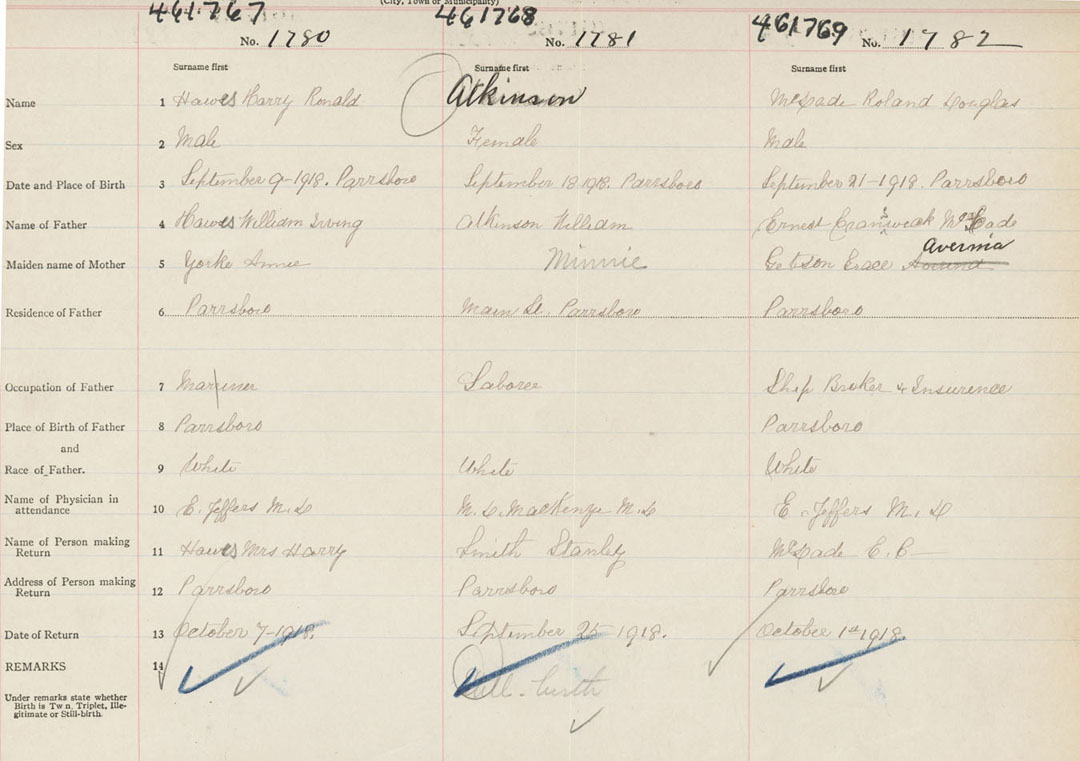 (City, Town or Municipality)
461767 461768 461769
No. 1780 No. 1781 No. 1782
Surname first Surname first Surname first
Name 1 Hawes Harry Ronald Atkinson McDade Roland Douglas
Sex 2 Male Female Male
Date and Place of Birth 3 September 9-1918. Parrsboro September 18 1918. Parrsboro September 21-1918. Parrsboro
Name of Father 4 Hawes William Irving Atkinson William Ernest Cranswick McDade
Averinia
Maiden name of Mother 5 Yorke Annie Minnie Grace
Residence of Father 6 Parrsboro Main St. Parrsboro Parrsboro
Occupation of Father 7 Marriner Laborer Ship Broker & Insurence
Place of Birth of Father 8 Parrsboro Parrsboro
and
Race of Father. 9 White White White
Name of Physician in
attendance 10 E. Jeffers M.D M.D. MacKenzie M.D E. Jeffers M.D
Name of Person making
Return 11 Hawes Mrs Harry Smith Stanley McDade E. C
Address of Person making
Return 12 Parrsboro Parrsboro Parrsboro
Date of Return 13 October 7-1918. September 25-1918. October 1st 1918
REMARKS 14
Still-birth
Under remarks state whether
Birth is Twin, Triplet, Ille-
gitimate or Still-birth.